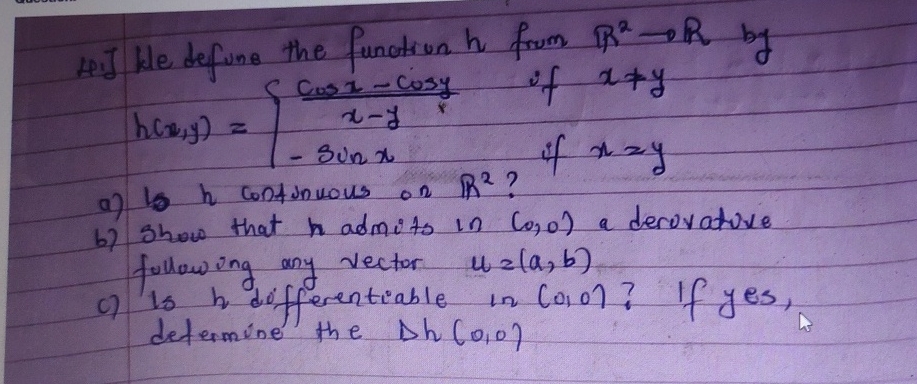 We define the function h from ℝ² → ℝ by
h(x,y) = { cos x - cos y / x - y if x ≠ y
- sin x if x = y
a) Is h continuous on ℝ² ?
b) Show that h admits in (0,0) a derivative
following any vector u = (a, b)
c) Is h differentiable in (0,0) ? If yes,
determine the Dh (0,0)